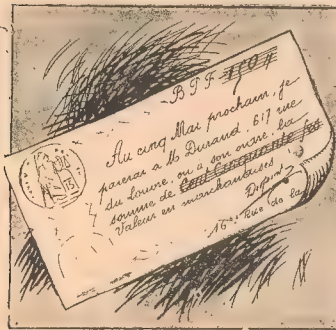 B.P.F.
Au cinq Mai prochain, je
paierai à Mr Durand, 617 rue
du Louvre, ou à son ordre, la
somme de Cent Cinquante fcs
Valeur en marchandises
Dupond
16 Rue de la
15